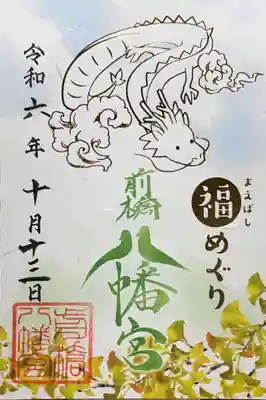 まえばし
福めぐり
前橋
八幡宮
令和六年 十月十三日
前橋
八幡宮